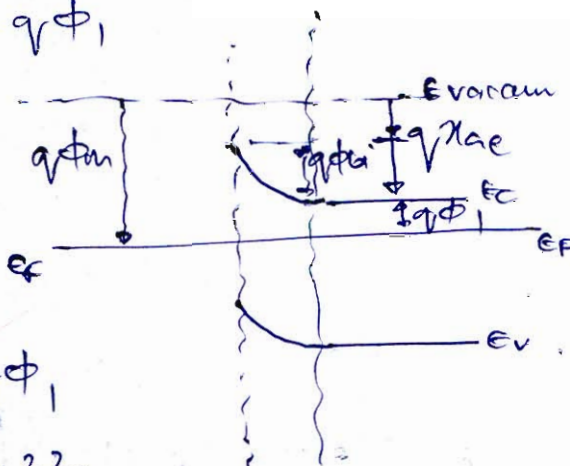 qΦ₁
Evacuum
qΦm
qΦbi
qχ
Ec
qΦ₁
EF
EF
Ev
Φ₁